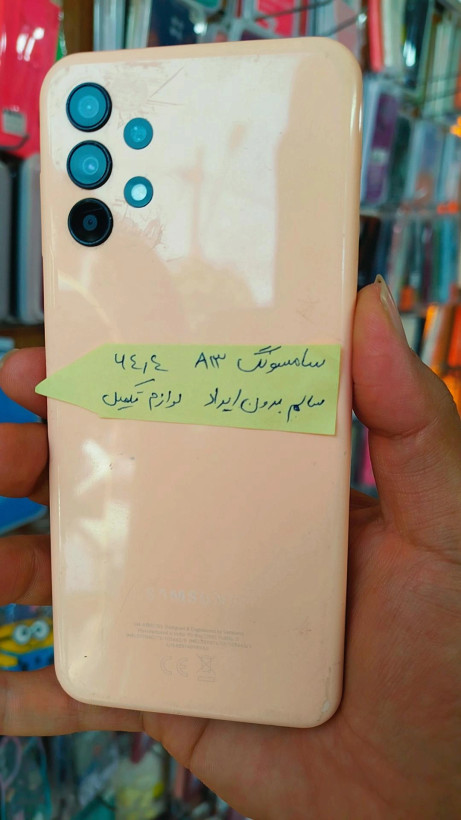 سامسونگ A۱۳ ۶٤٫٤
سالم بدون ایراد لوازم تکمیل
SAMSUNG